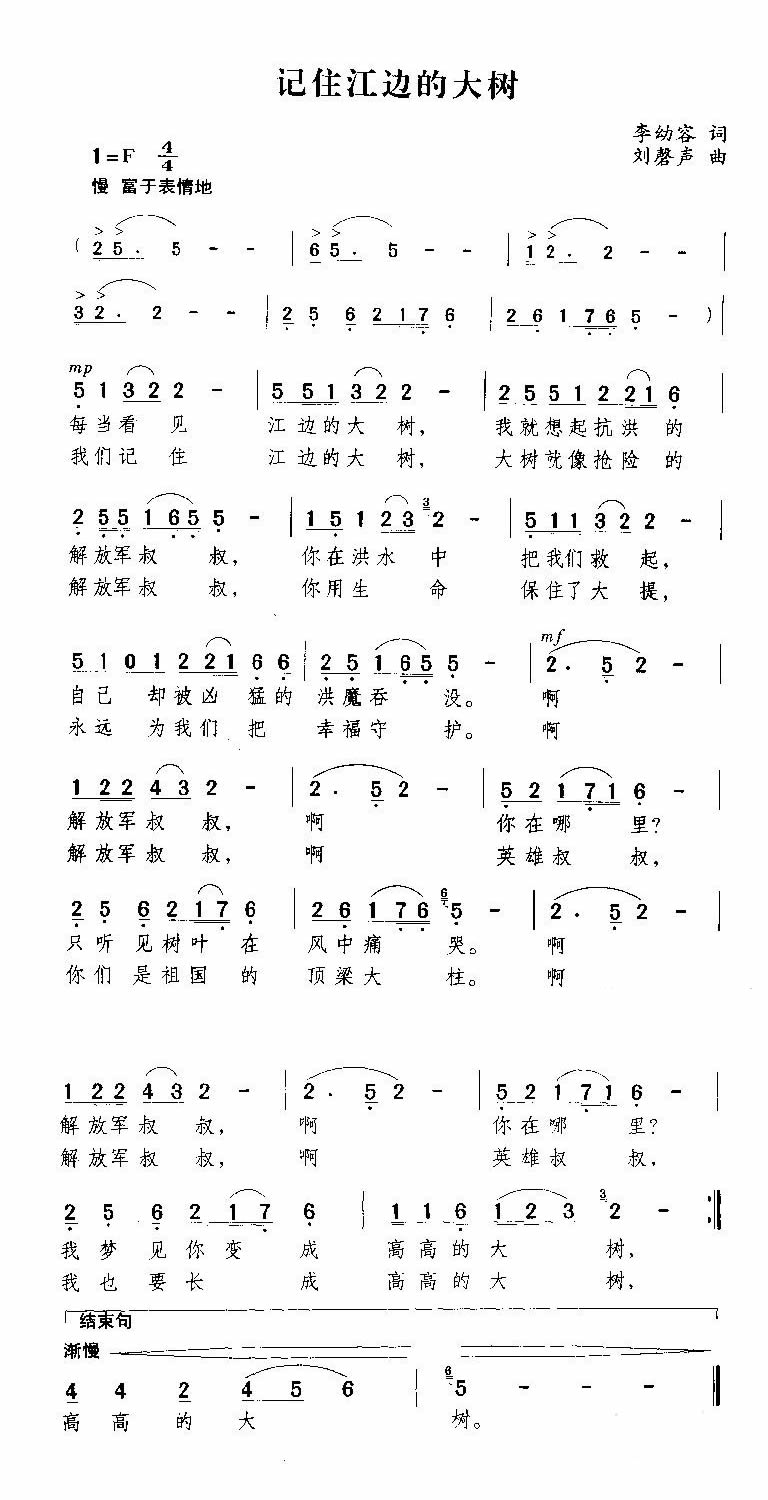 记住江边的大树
李幼容 词
1=F 4/4
刘磬声 曲
慢 富于表情地
( 2 5 . 5 - - | 6 5 . 5 - - | 1 2 . 2 - - |
3 2 . 2 - - | 2 5 6 2 1 7 6 | 2 6 1 7 6 5 - ) |
mp
5 1 3 2 2 2 - | 5 5 1 3 2 2 2 - | 2 5 5 1 2 2 1 6 |
每当看见 江边的大树, 我就想起抗洪的
我们记住 江边的大树, 大树就像抢险的
3
2 5 5 1 6 5 5 - | 1 5 1 2 3 2 - | 5 1 1 3 2 2 - |
解放军叔叔, 你在洪水中 把我们救起,
解放军叔叔, 你用生命 保住了大提,
mf
5 1 0 1 2 2 1 6 6 | 2 5 1 6 5 5 - | 2 . 5 2 - |
自己却被凶猛的 洪魔吞没。 啊
永远为我们把 幸福守护。 啊
1 2 2 4 3 2 - | 2 . 5 2 - | 5 2 1 7 1 6 - |
解放军叔叔, 啊 你在哪里?
解放军叔叔, 啊 英雄叔叔,
6
2 5 6 2 1 7 6 | 2 6 1 7 6 5 - | 2 . 5 2 - |
只听见树叶在 风中痛哭。 啊
你们是祖国的 顶梁大柱。 啊
1 2 2 4 3 2 - | 2 . 5 2 - | 5 2 1 7 1 6 - |
解放军叔叔, 啊 你在哪里?
解放军叔叔, 啊 英雄叔叔,
3
2 5 6 2 1 7 6 | 1 1 6 1 2 3 2 - :‖
我梦见你变成 高高的大树,
我也要长成 高高的大树,
结束句
渐慢
6
4 4 2 4 5 6 | 5 - - - ‖
高高的大树。